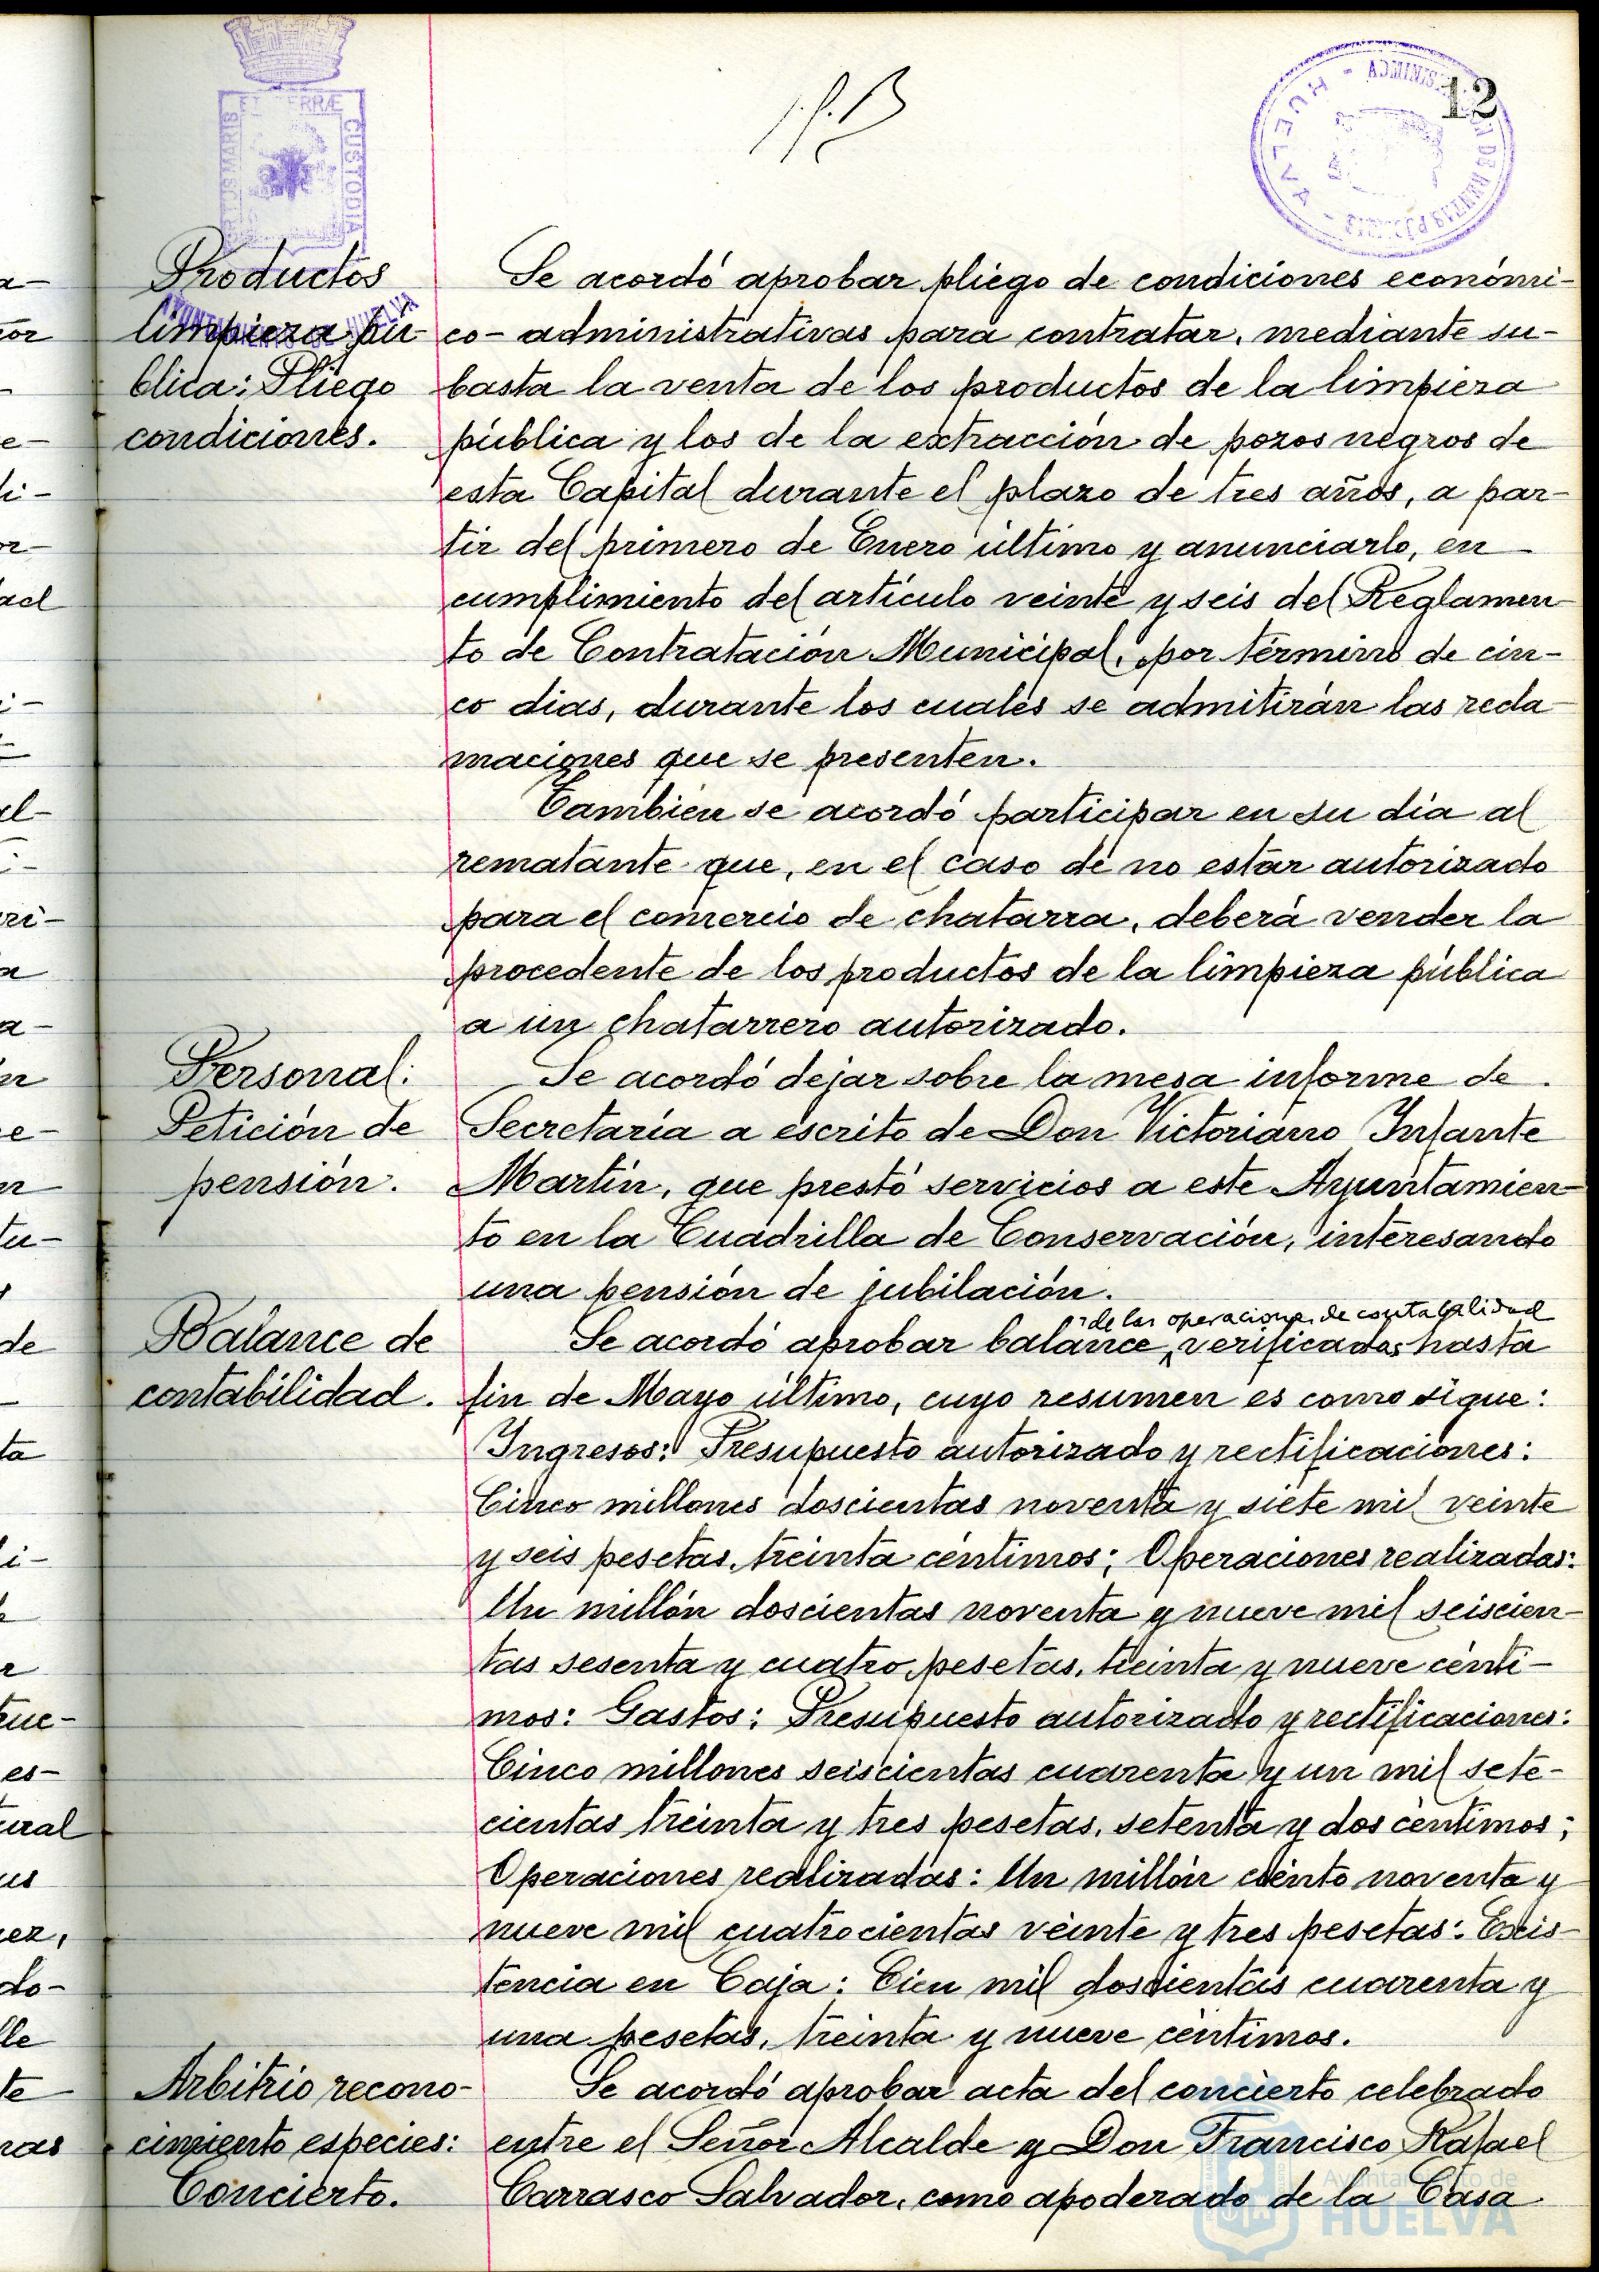 12
Productos
limpieza pú-
blica: Pliego
condiciones.
Se acordó aprobar pliego de condiciones económi-
co-administrativas para contratar, mediante su-
basta la venta de los productos de la limpieza
pública y los de la extracción de pozos negros de
esta Capital durante el plazo de tres años, a par-
tir del primero de Enero último y anunciarlo, en
cumplimiento del artículo veinte y seis del Reglamen-
to de Contratación Municipal, por término de cin-
co dias, durante los cuales se admitirán las recla-
maciones que se presenten.
También se acordó participar en su día al
rematante que, en el caso de no estar autorizado
para el comercio de chatarra, deberá vender la
procedente de los productos de la limpieza pública
a un chatarrero autorizado.
Personal:
Petición de
pensión.
Se acordó dejar sobre la mesa informe de
Secretaría a escrito de Don Victoriano Infante
Martín, que prestó servicios a este Ayuntamien-
to en la Cuadrilla de Conservación, interesando
una pensión de jubilación.
Balance de
contabilidad.
de las operaciones de contabilidad
Se acordó aprobar balance verificadas hasta
fin de Mayo último, cuyo resumen es como sigue:
Ingresos: Presupuesto autorizado y rectificaciones:
Cinco millones doscientas noventa y siete mil veinte
y seis pesetas, treinta céntimos; Operaciones realizadas:
Un millón doscientas noventa y nueve mil seiscien-
tas sesenta y cuatro pesetas, treinta y nueve cénti-
mos: Gastos: Presupuesto autorizado y rectificaciones:
Cinco millones seiscientas cuarenta y un mil sete-
cientas treinta y tres pesetas, setenta y dos céntimos;
Operaciones realizadas: Un millón ciento noventa y
nueve mil cuatrocientas veinte y tres pesetas: Exis-
tencia en Caja: Cien mil doscientas cuarenta y
una pesetas, treinta y nueve céntimos.
Arbitrio recono-
cimiento especies:
Concierto.
Se acordó aprobar acta del concierto celebrado
entre el Señor Alcalde y Don Francisco Rafael
Carrasco Salvador, como apoderado de la Casa
Ayuntamiento de
HUELVA